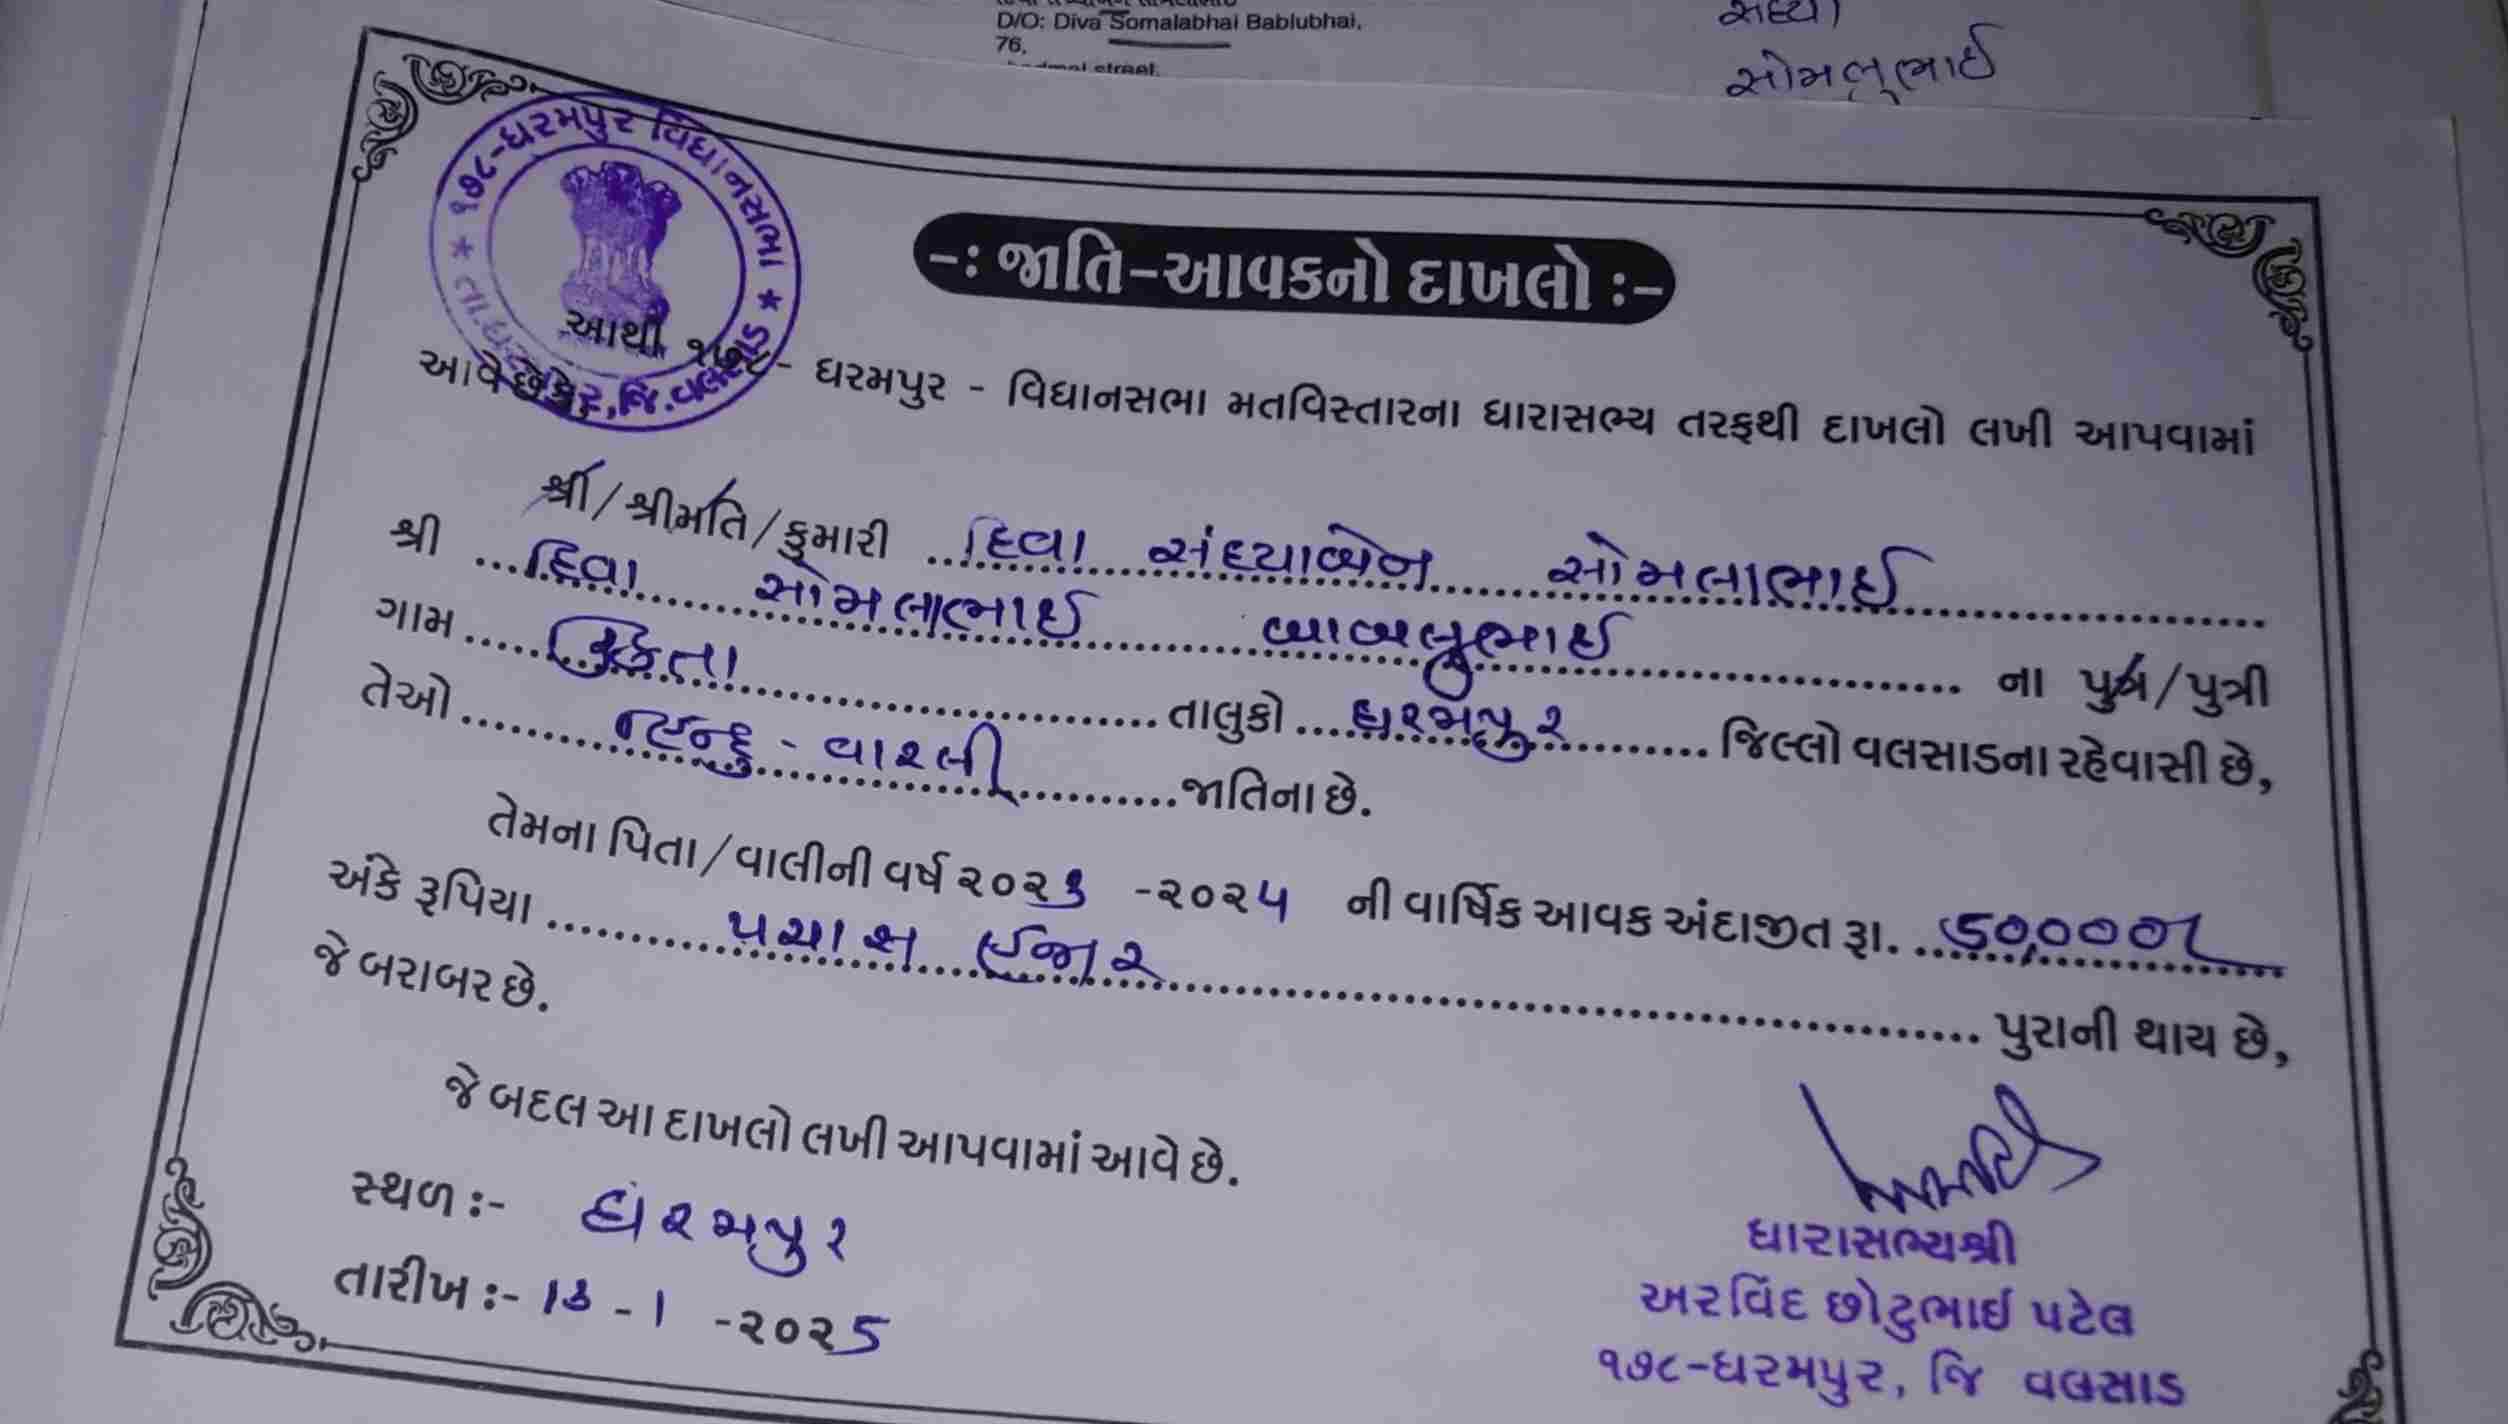 D/O: Diva Somalabhai Bablubhai,
76,
street,
સોમલુભાઈ
૧૭૮-ધરમપુર વિધાનસભા
-: જાતિ-આવકનો દાખલો :-
આથી ૧૭૮- ધરમપુર - વિધાનસભા મતવિસ્તારના ધારાસભ્ય તરફથી દાખલો લખી આપવામાં
આવે છે કે,
શ્રી/શ્રીમતિ/કુમારી દિવા સંધ્યાબેન સોમલાભાઈ
શ્રી દિવા સોમલાભાઈ બાબલુભાઈ ના પુત્ર/પુત્રી
ગામ તાલુકો ધરમપુર જિલ્લો વલસાડના રહેવાસી છે,
તેઓ હિન્દુ - વારલી જાતિના છે.
તેમના પિતા/વાલીની વર્ષ ૨૦૨ -૨૦૨૫ ની વાર્ષિક આવક અંદાજીત રૂા. 50,000/-
અંકે રૂપિયા પચાસ હજાર પુરાની થાય છે,
જે બરાબર છે.
જે બદલ આ દાખલો લખી આપવામાં આવે છે.
સ્થળ :- ધરમપુર
તારીખ :- 13 - 1 -૨૦૨5
ધારાસભ્યશ્રી
અરવિંદ છોટુભાઈ પટેલ
૧૭૮-ધરમપુર, જિ વલસાડ